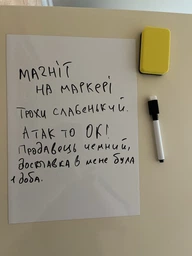 МАГНІТ
НА МАРКЕРІ
ТРОХИ СЛАБЕНЬКИЙ.
А ТАК ТО ОК!
ПРОДАВЕЦЬ ЧЕМНИЙ,
ДОСТАВКА В МЕНЕ БУЛА
1 ДОБА.